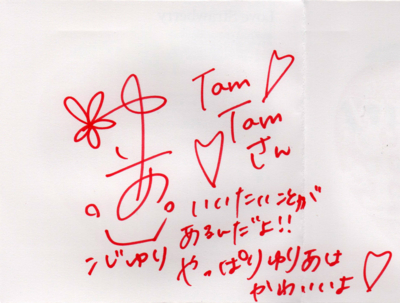 Tam
Tam
さん
ゆあ
こじゆり
いいたいことが
あるんだよ!!
やっぱりゆりあは
かわいいよ